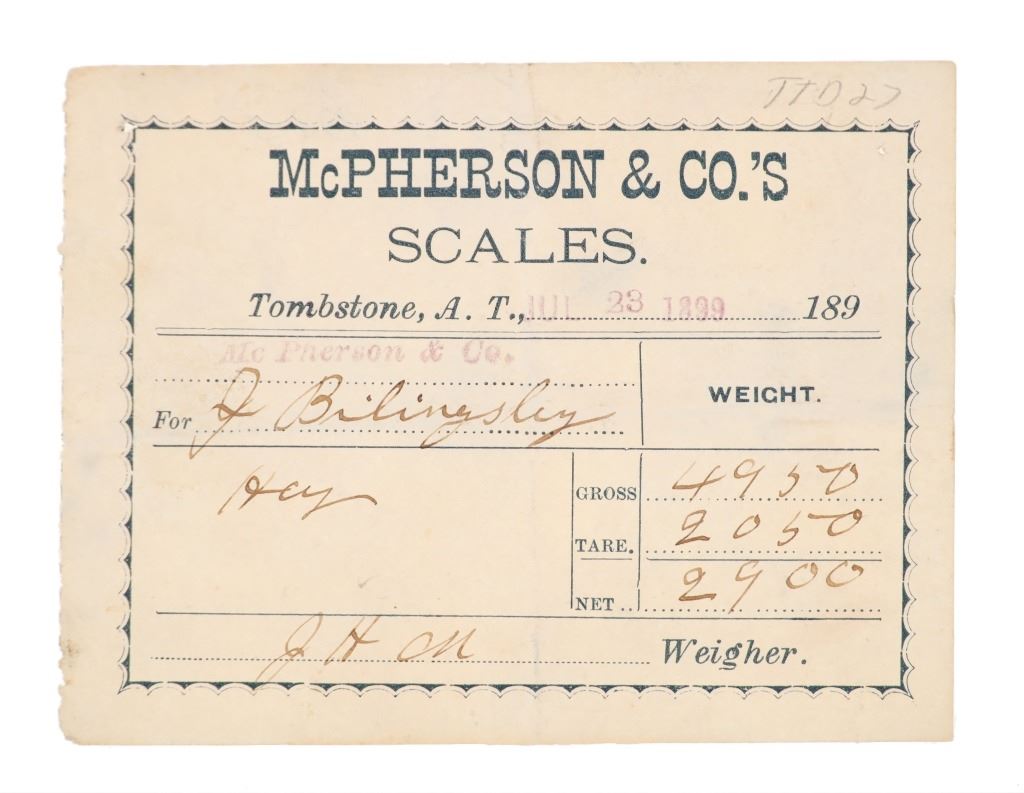 TTD 27
McPHERSON & CO.'S
SCALES.
Tombstone, A. T., JUL 23 1899 189
Mc Pherson & Co.
For J Bilingsley
WEIGHT.
Hay
GROSS 4950
TARE. 2050
NET .. 2900
J H M Weigher.